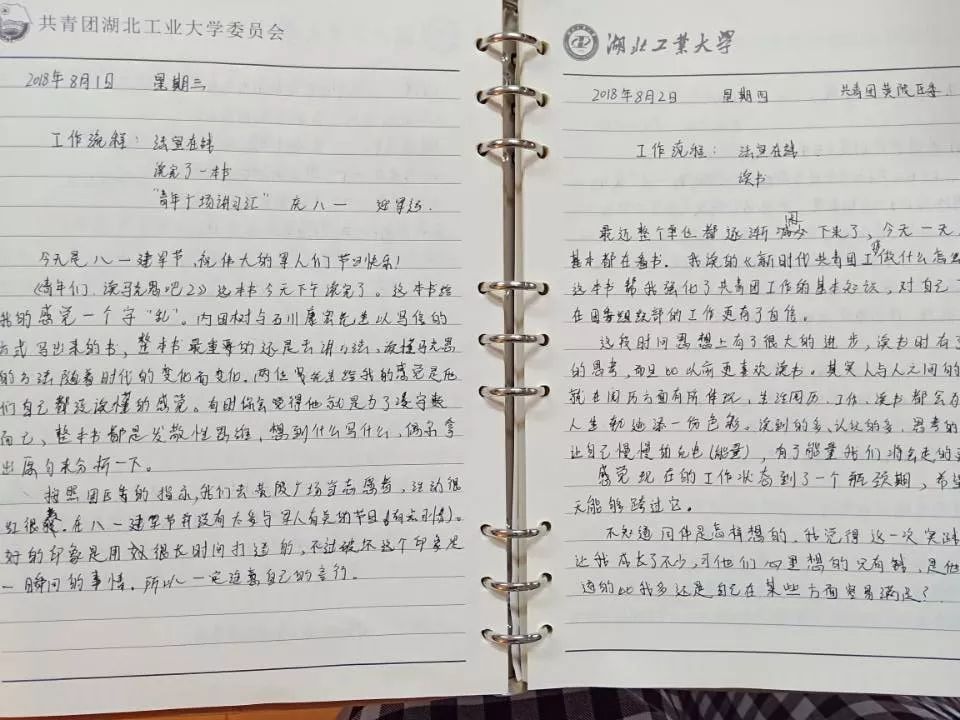 共青团湖北工业大学委员会
2018年8月1日 星期三
工作流程：法宣在线
读完了一本书
"青年广场讲习汇" 庆八一 迎军运.
今天是八一建军节,祝伟大的军人们节日快乐!
《青年们,读马克思吧2》这本书今天下午读完了。这本书给
我的感觉一个字"乱"。内田树与石川康宏先生以写信的
方式写出来的书,整本书最重要的还是去讲方法,读懂马克思
的方法随着时代的变化而变化.两位先生给我的感觉是他
们自己都没读懂的感觉。有时你会觉得他就是为了凑字数
而已,整本书都是发散性思维,想到什么写什么,偶尔拿
出原句来分析一下。
按照团区委的指示,我们去黄陂广场当志愿者,活动很
红很,在八一建军节并没有太多与军人有关的节目
好的印象是用双很长时间打造的,不过破坏这个印象是
一瞬间的事情.所以一定注意自己的言行。
湖北工業大學
2018年8月2日 星期四 共青团黄陂区委
工作流程：法宣在线.
读书
最近整个单位都逐渐下来了,今天一天
基本都在看书. 我读的《新时代共青团工作做什么怎
这本书帮我强化了共青团工作的基本知识,对自己
在团委组织部的工作更有了自信.
这段时间思想上有了很大的进步,读书时有了
的思考,而且比以前更喜欢读书.其实人与人之间的
就在阅历方面有所体现,生活阅历、工作、读书都会在
人生轨迹添一份色彩。读到的多、认识的多、思考的
让自己慢慢的充电(能量),有了能量我们将会走的更
感觉现在的工作状态到了一个瓶颈期,希望
天能够跨过它.
不知道同伴是怎样想的,我觉得这一次实践
让我成长了不少,可他们心里想的只有钱,是他
追的比我多还是自己在某些方面容易满足?